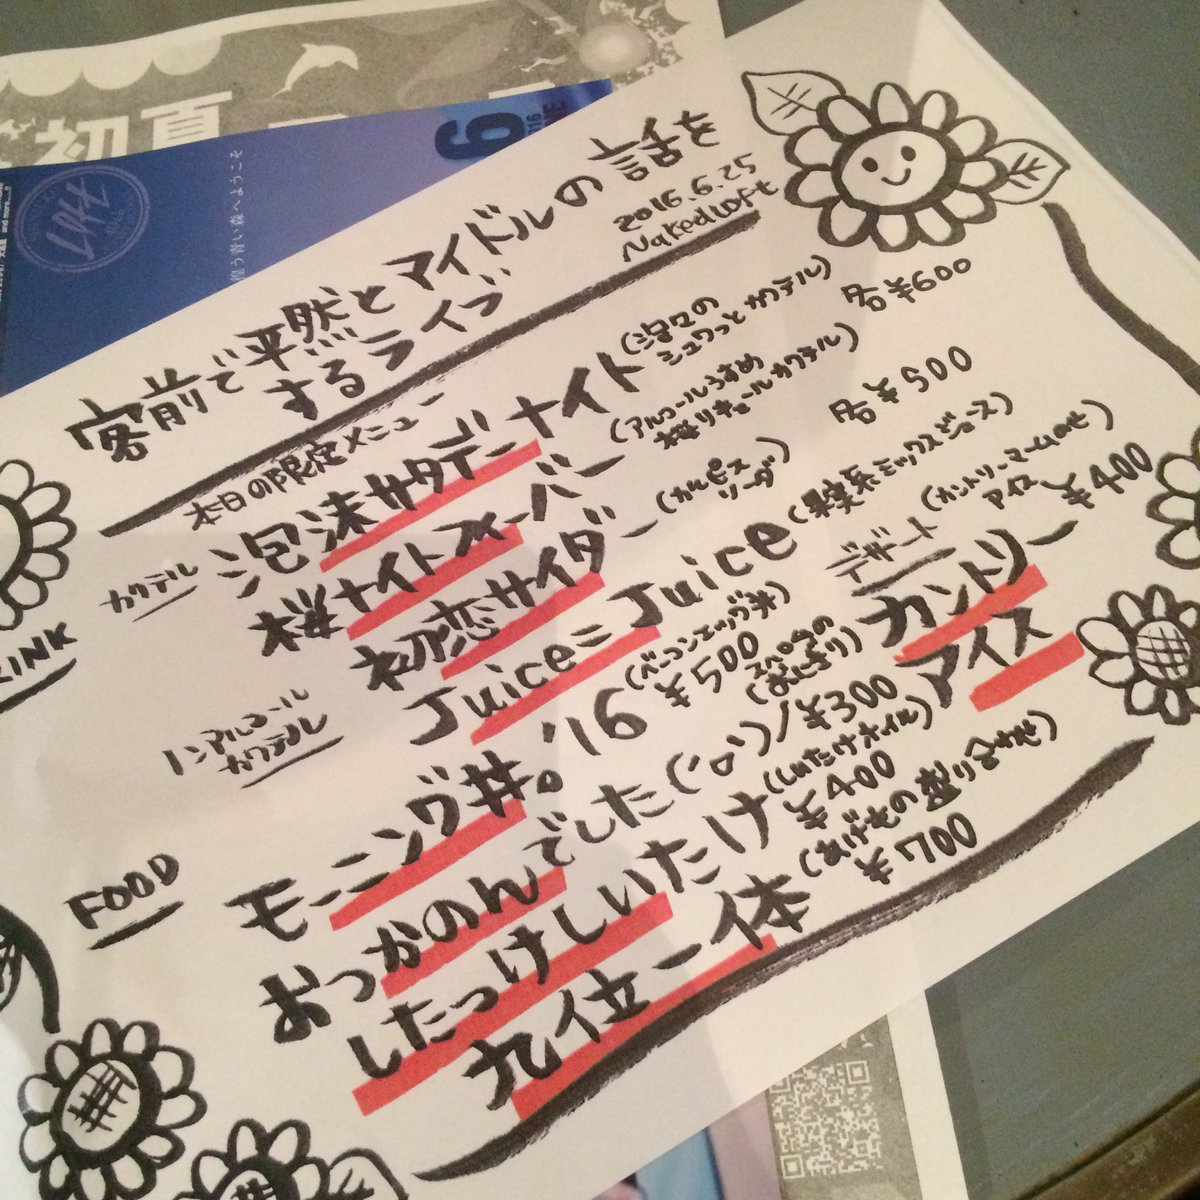 初夏
6
2016
and more...!!
Loft
徨う青い森へようこそ
客前で平然とアイドルの話を
するライブ
2016.6.25
NakedLoft
本日の限定メニュー
カクテル
泡沫サタデーナイト
シュワっとカクテル)
各¥600
桜ナイトフィーバー
(アルコールうすめ
桜リキュールカクテル)
RINK
ノンアルコール
カクテル
初恋サイダー
(カルピス
ソーダ)
各¥500
Juice=Juice
(果実系ミックスジュース)
FOOD
モーニング丼。'16
(ベーコンエッグ丼)
¥500
おっかのんでした('ロ')ノ
(スパムの
おにぎり)
¥300
したっけしいたけ
(しいたけホイル)
¥400
九位一体
(あげもの盛り合わせ)
¥700
デザート
カントリー
アイス
(カントリーマアムのせ
アイス)
¥400